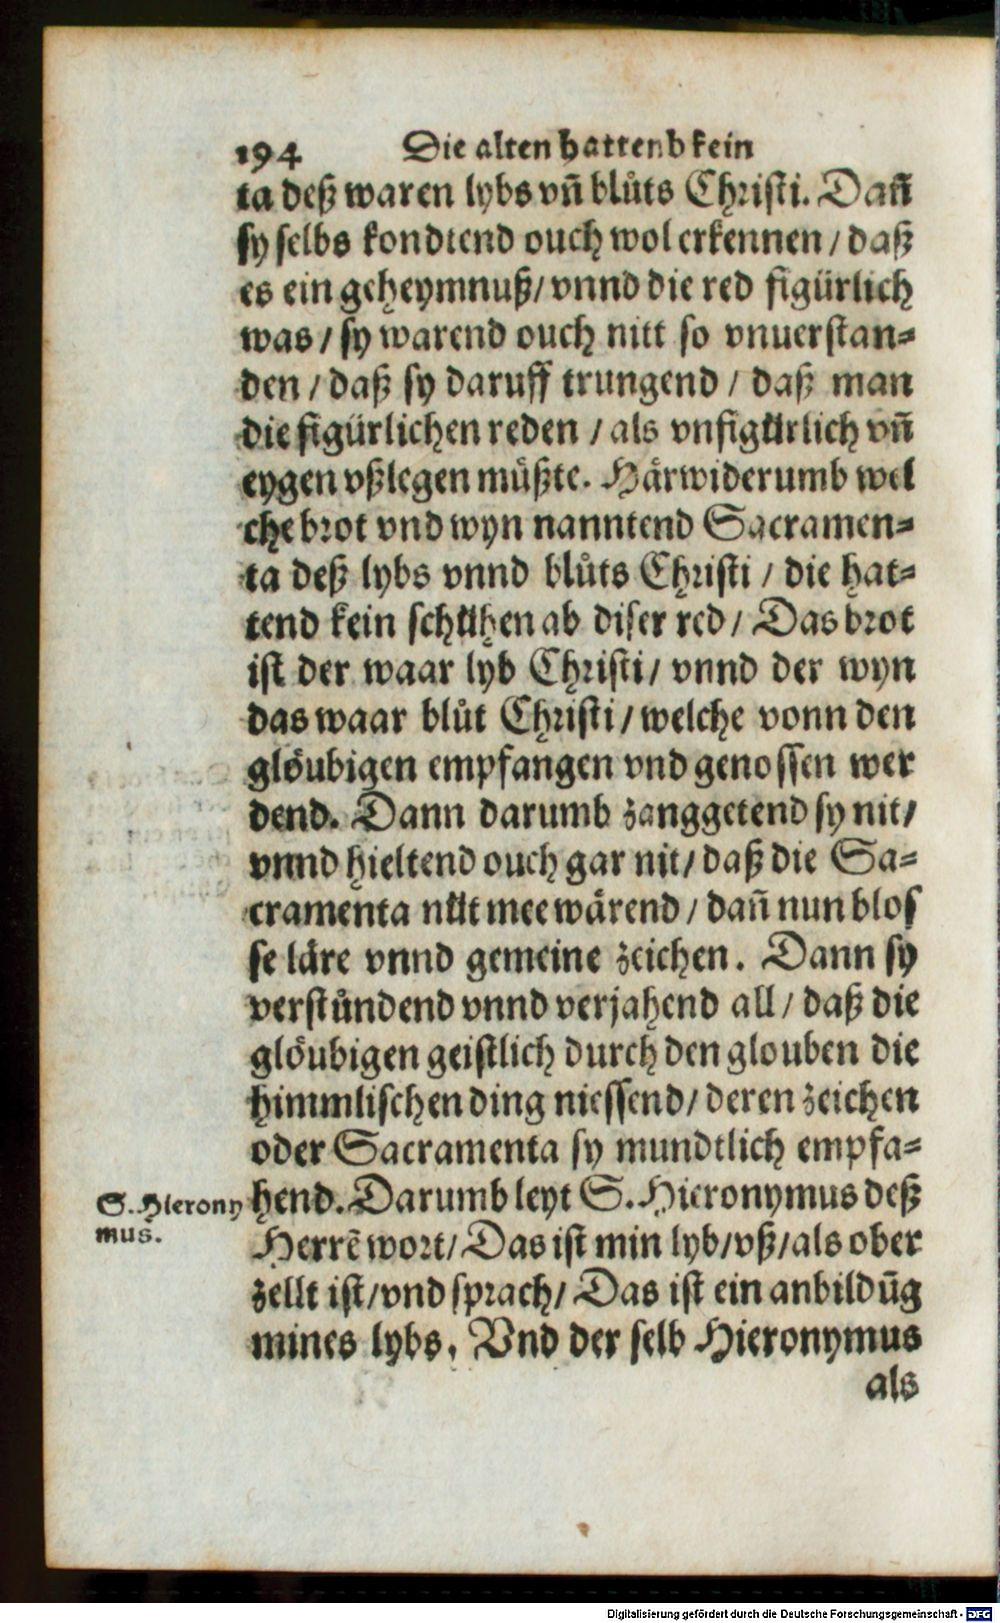 194 Die alten hattend kein
ta deß waren lybs vñ blůts Christi. Dañ
sy selbs kondtend ouch wol erkennen / daß
es ein geheymnuß / vnnd die red figürlich
was / sy warend ouch nitt so vnuerstan=
den / daß sy daruff trungend / daß man
die figürlichen reden / als vnfigürlich vñ
eygen vßlegen müßte. Härwiderumb wel
che brot vnd wyn nanntend Sacramen=
ta deß lybs vnnd blůts Christi / die hat=
tend kein schühen ab diser red / Das brot
ist der waar lyb Christi / vnnd der wyn
das waar blůt Christi / welche vonn den
glöubigen empfangen vnd genossen wer
dend. Dann darumb zanggetend sy nit /
vnnd hieltend ouch gar nit / daß die Sa=
cramenta nüt mee wärend / dañ nun blos
se läre vnnd gemeine zeichen. Dann sy
verstůndend vnnd verjahend all / daß die
glöubigen geistlich durch den glouben die
himmlischen ding niessend / deren zeichen
oder Sacramenta sy mundtlich empfa=
hend. Darumb leyt S. Hieronymus deß
S. Hierony
mus.
Herrẽ wort / Das ist min lyb / vß / als ober
zellt ist / vnd sprach / Das ist ein anbildũg
mines lybs. Vnd der selb Hieronymus
als
Digitalisierung gefördert durch die Deutsche Forschungsgemeinschaft - DFG